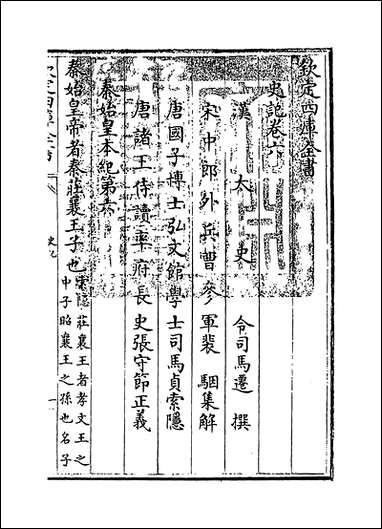 欽定四庫全書
史記卷六
漢太史令司馬遷撰
宋中郎外兵曹參軍裴駰集解
唐國子博士弘文館學士司馬貞索隱
唐諸王侍讀率府長史張守節正義
秦始皇本紀第六
秦始皇帝者秦莊襄王子也
索隱莊襄王者孝文王之
中子昭襄王之孫也名子
欽定四庫全書
史記
一